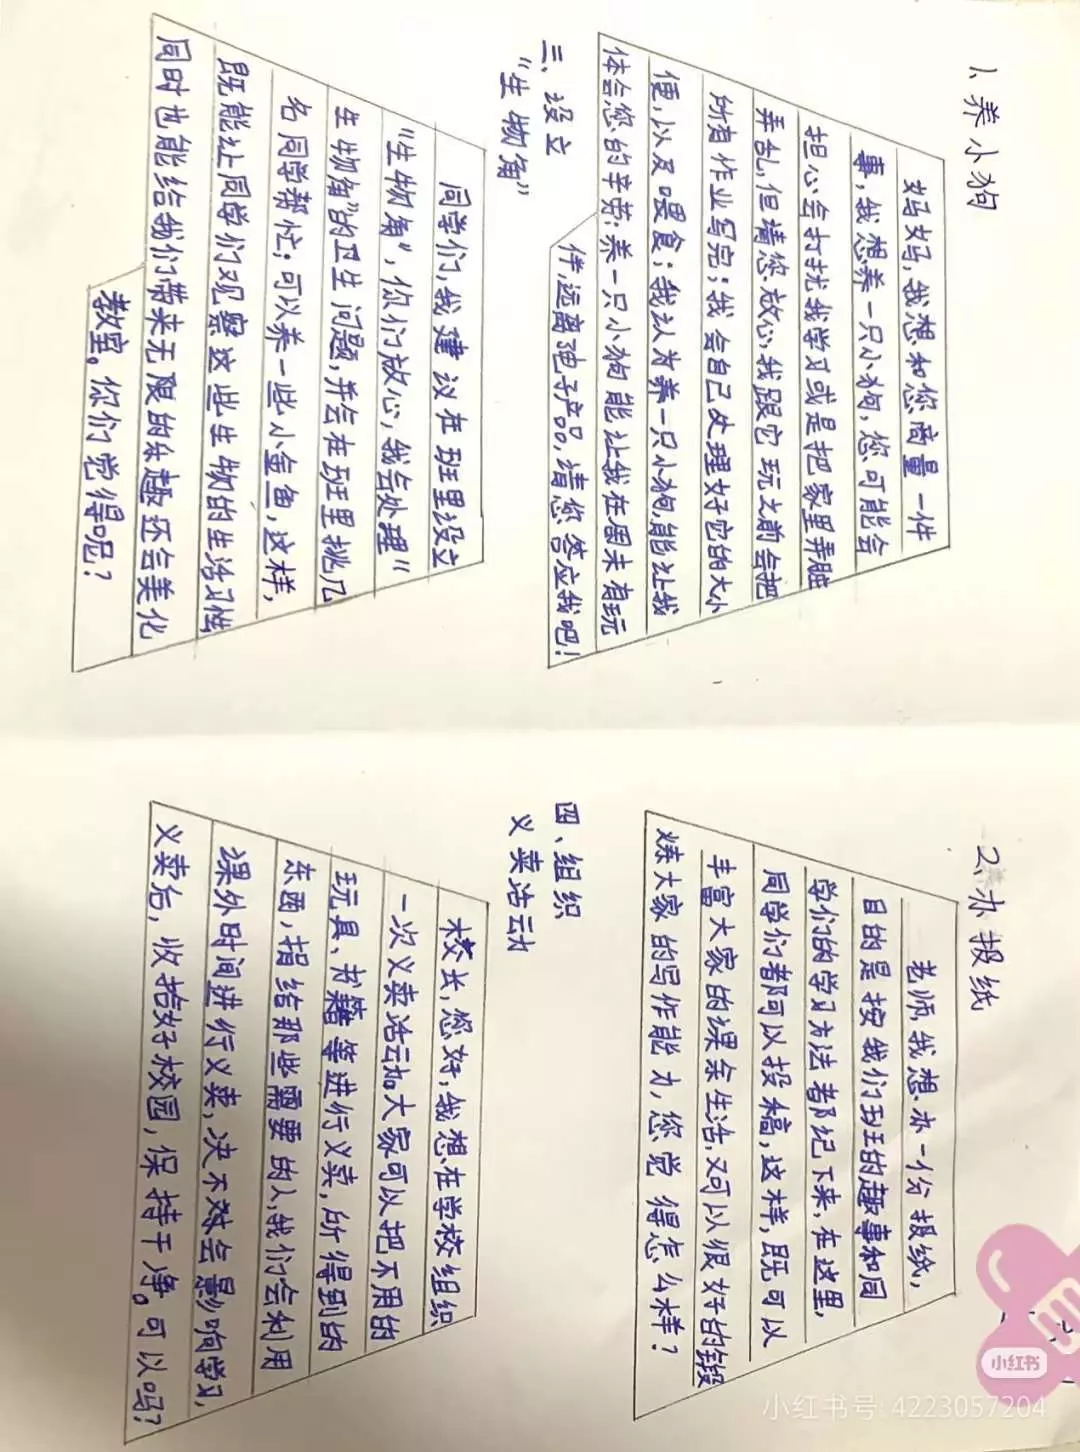 1、养小狗
妈妈,我想和您商量一件
事,我想养一只小狗,您可能会
担心会打扰我学习或是把家里弄脏
弄乱,但请您放心,我跟它玩之前会把
所有作业写完;我会自己处理好它的大小
便以及喂食;我认为养一只小狗,能让我
体会您的辛劳;养一只小狗能让我在周末有玩
伴,远离电子产品,请您答应我吧!
三、设立
“生物角”
同学们,我建议在班里设立
“生物角”,你们放心,我会处理“
生物角”的卫生问题,并会在班里挑几
名同学帮忙;可以养一些小金鱼,这样,
既能让同学们观察这些生物的生活习性
同时也能给我们带来无限的乐趣还会美化
教室。你们觉得呢?
2、办报纸
老师,我想办一份报纸,
目的是按我们班的趣事和同
学们的学习方法都记下来,在这里,
同学们都可以投稿,这样,既可以
丰富大家的课余生活,又可以很好的锻
炼大家的写作能力,您觉得怎么样?
四、组织
义卖活动
校长,您好,我想在学校组织
一次义卖活动大家可以把不用的
玩具、书籍等进行义卖,所得到的
东西,捐给那些需要的人,我们会利用
课外时间进行义卖,决不会影响学习,
义卖后,收拾好校园,保持干净。可以吗?
小红书
小红书号: 4223057204